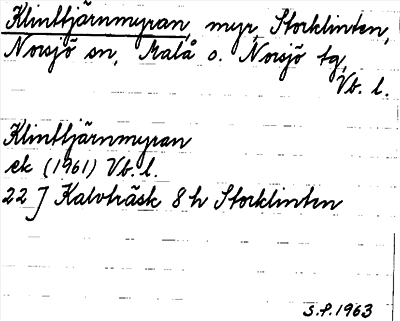 Klinttjärnmyran, myr, Storklinten,
Norsjö sn, Malå o. Norsjö tg,
Vb. l.
Klinttjärnmyran
ek (1961) Vb. l.
22 J Kalvträsk 8 h Storklinten
S.P. 1963